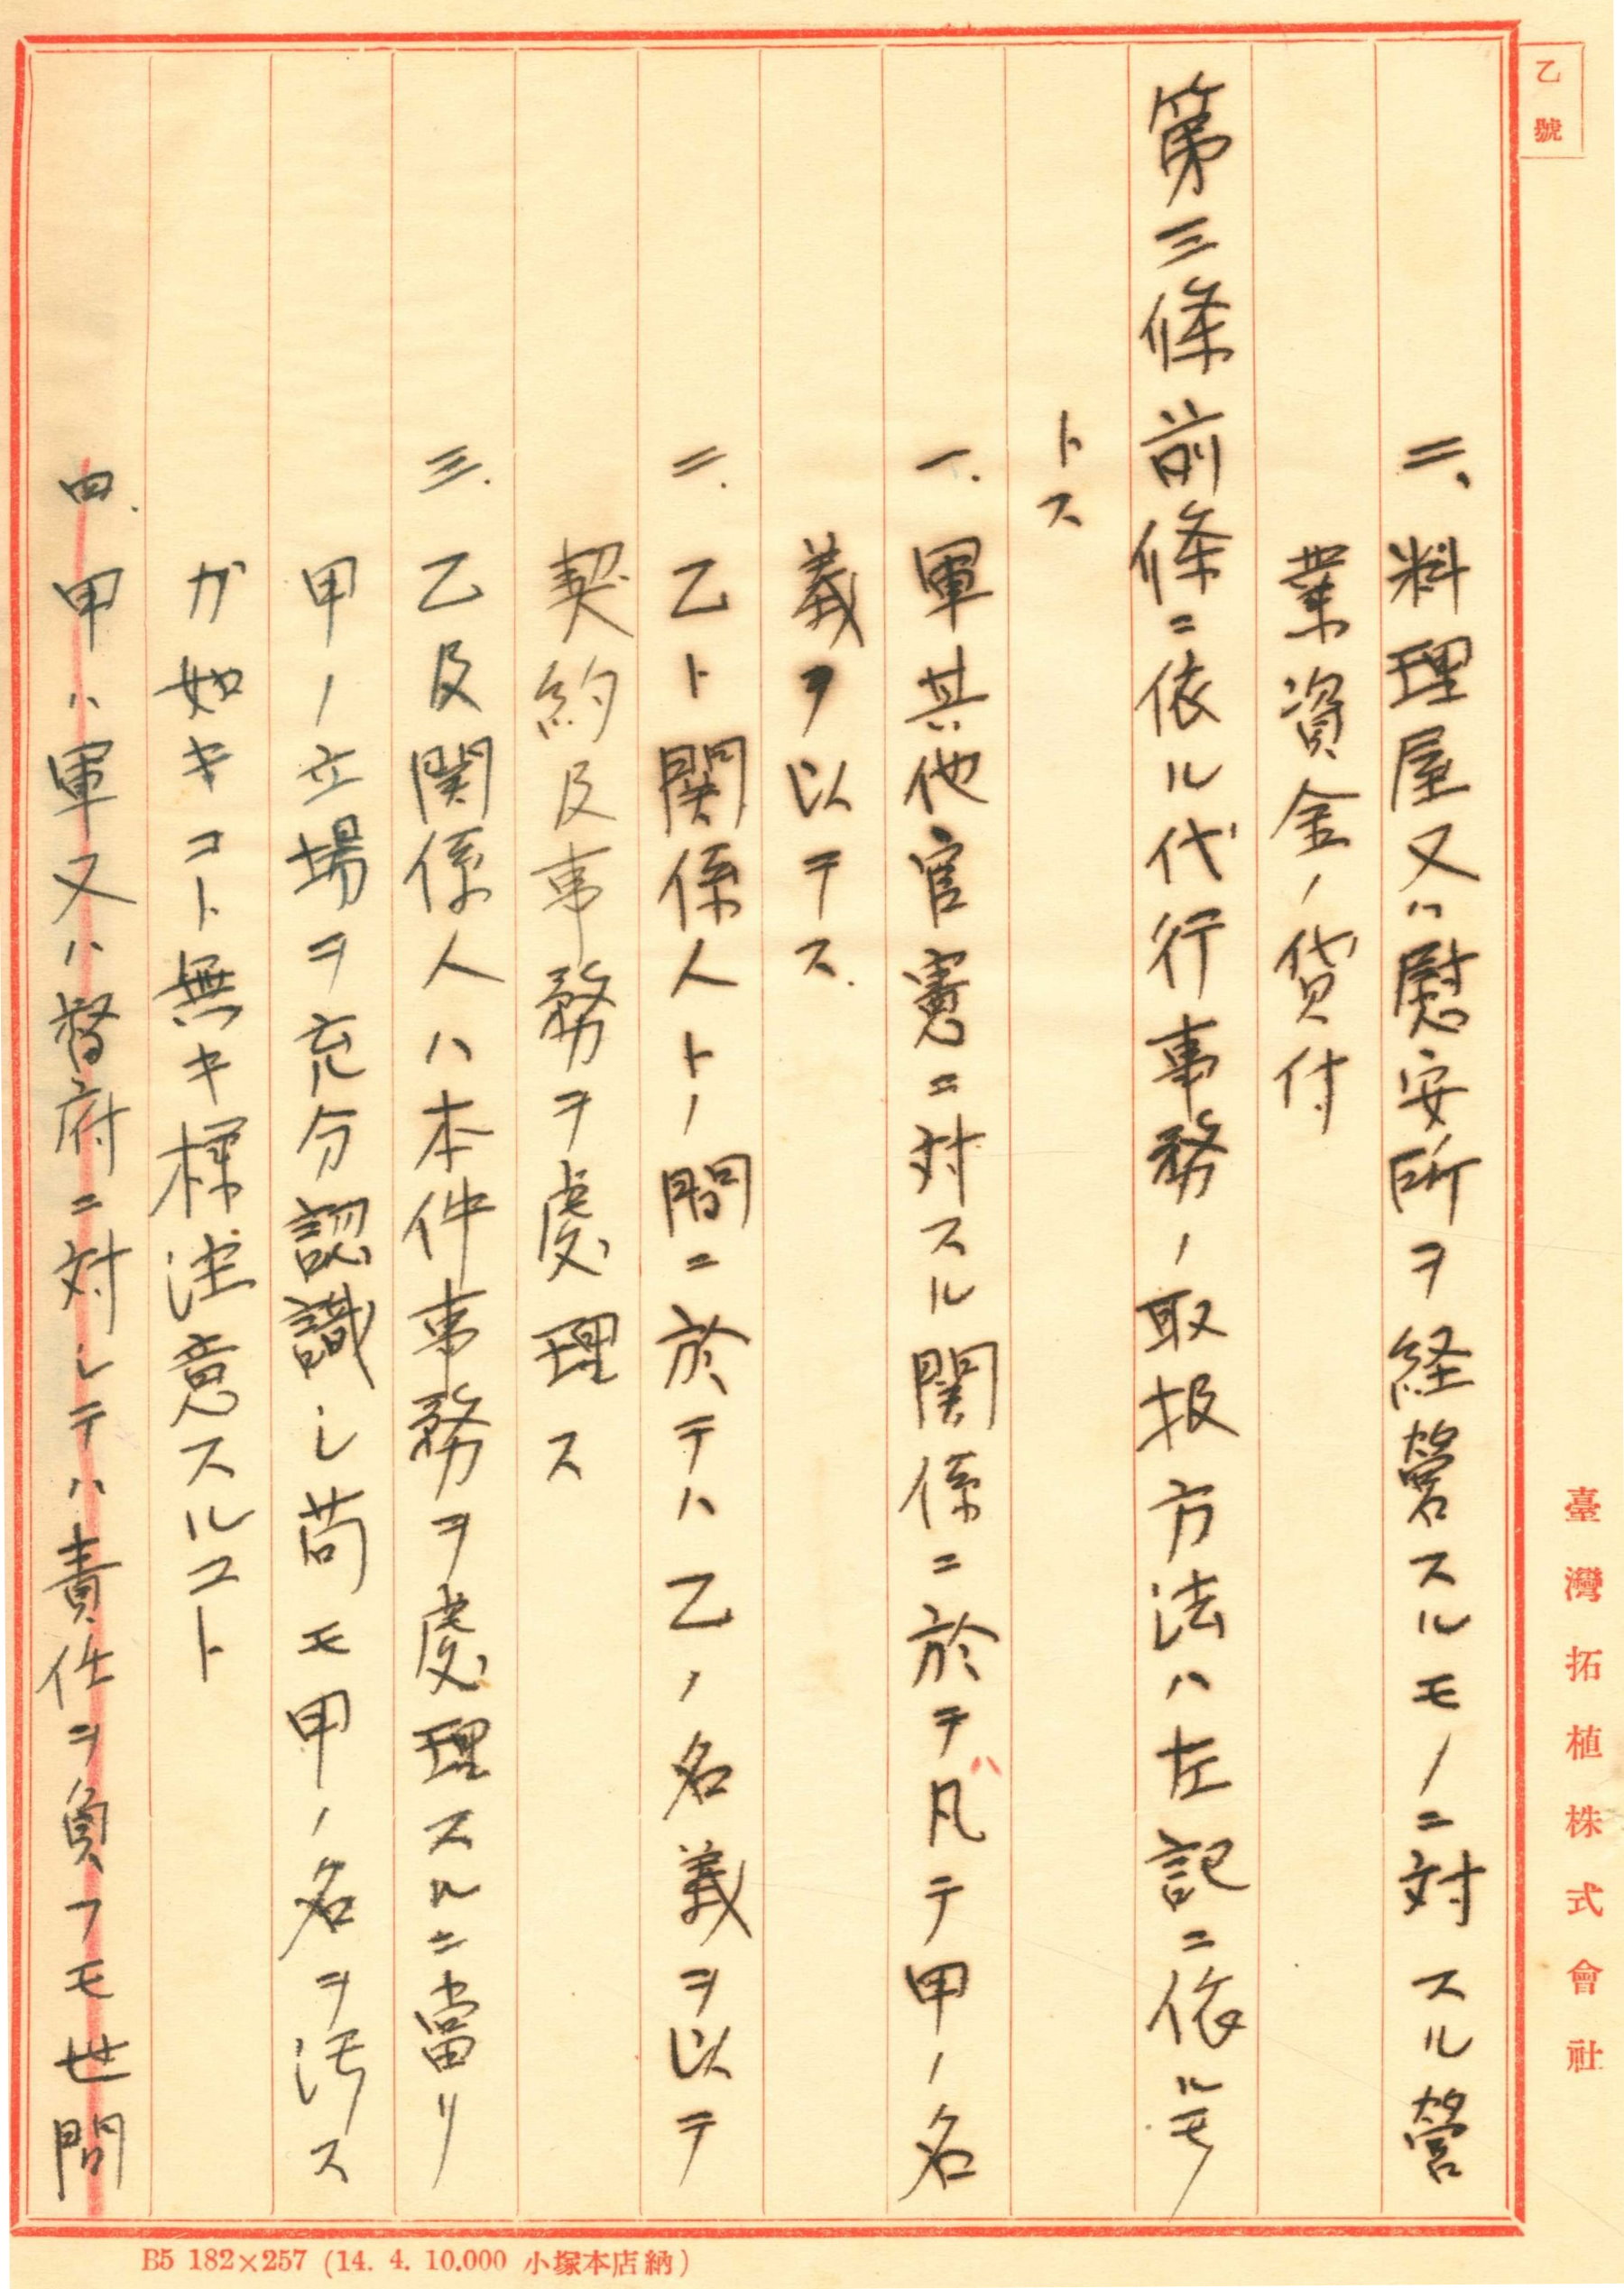 乙號
二、料理屋又ハ慰安所ヲ経營スルモノニ対スル營
業資金ノ貸付
第三條 前條ニ依ル代行事務ノ取扱方法ハ左記ニ依ルモノ
トス
一.軍其他官憲ニ対スル関係ニ於テハ凡テ甲ノ名
義ヲ以テス.
二.乙ト関係人トノ間ニ於テハ乙ノ名義ヲ以テ
契約及事務ヲ處理ス
三.乙及関係人ハ本件事務ヲ處理スルニ當リ
甲ノ立場ヲ充分認識シ苟モ甲ノ名ヲ汚ス
ガ如キコト無キ様注意スルコト
四.甲ハ軍又ハ督府ニ対シテハ責任ヲ負フモ世間
臺灣拓植株式會社
B5 182×257 (14. 4. 10.000 小塚本店納)